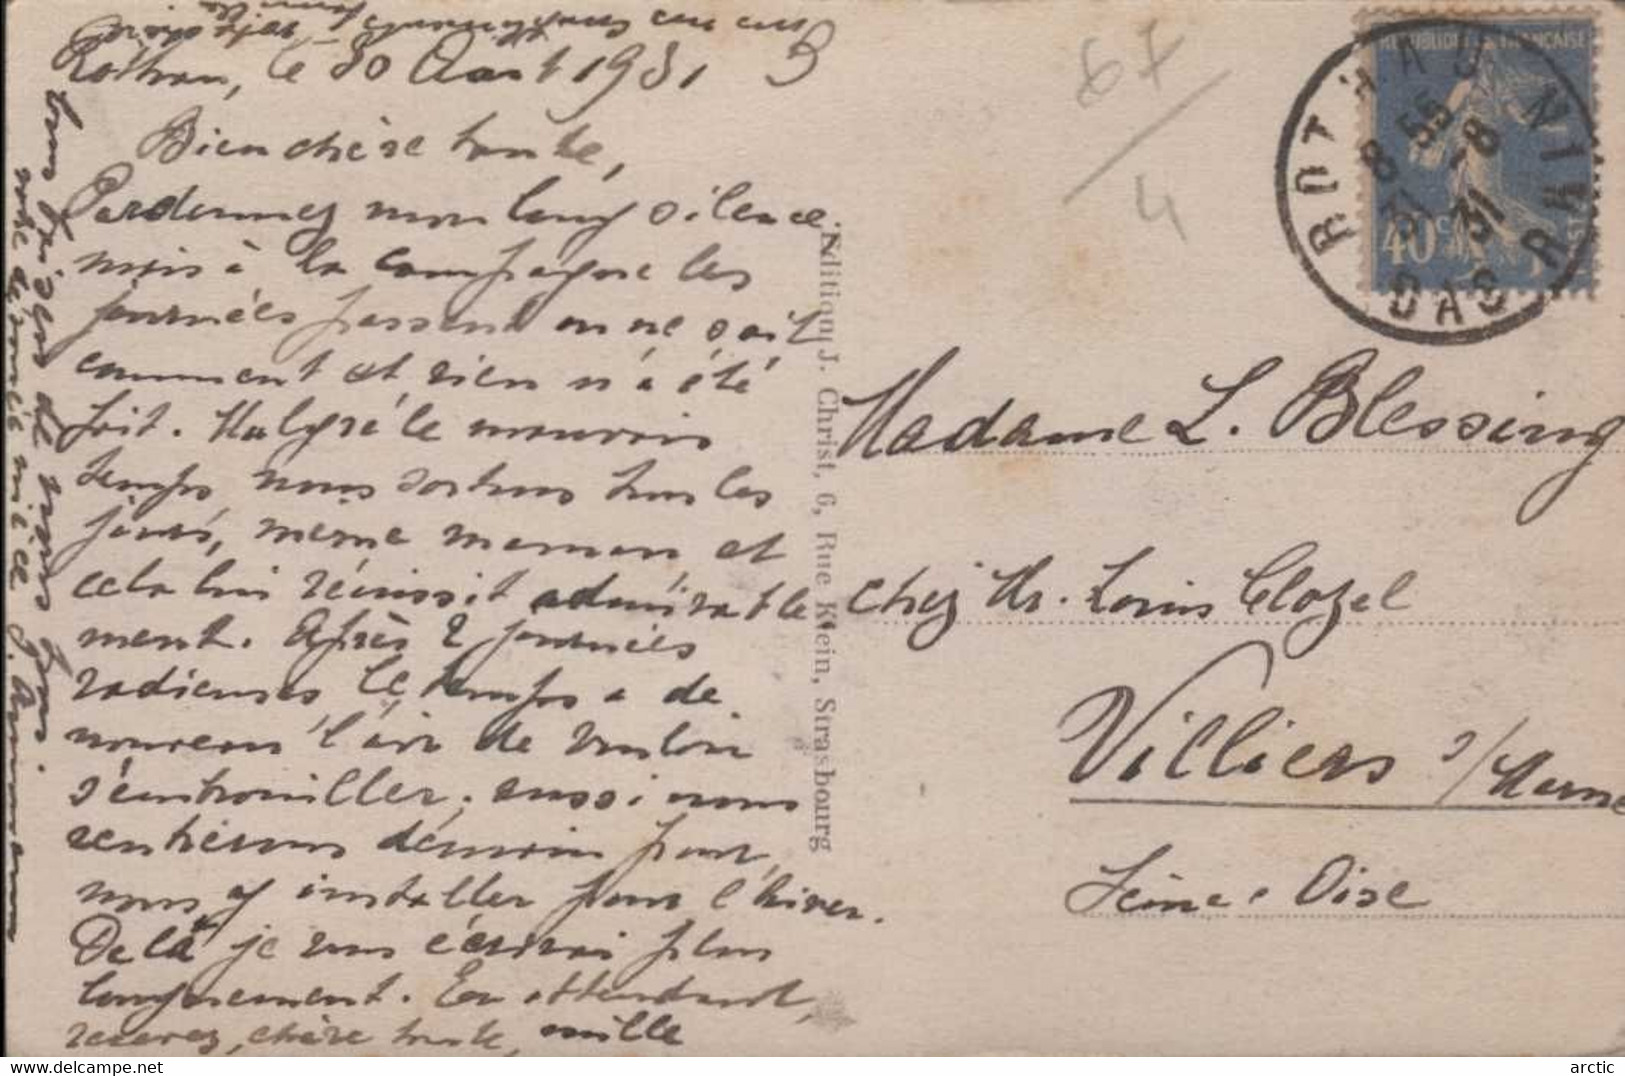 Rothau, le 30 Août 1931
Bien chère tante,
Pardonnez mon long silence
mais à la campagne les
journées passent on ne sait
comment et rien n'a été
fait. Malgré le mauvais
temps, nous sortons tous les
jours, même maman et
cela lui réussit admirable
ment. Après 2 journées
radieuses le temps a de
nouveau l'air de vouloir
s'embrouiller, aussi nous
rentrerons demain pour
nous y installer pour l'hiver.
De là je vous écrirai plus
longuement. En attendant,
recevez, chère tante, mille
bons baisers de nous tous
votre dévouée nièce
67
4
REPUBLIQUE FRANÇAISE
40c
ROTHAU
BAS RHIN
8 55
31 -8
31
Edition J. Christ, 6, Rue Klein, Strasbourg
Madame L. Blessing
chez Mr. Louis Clozel
Villiers s/Marne
Seine & Oise
delcampe.net
arctic